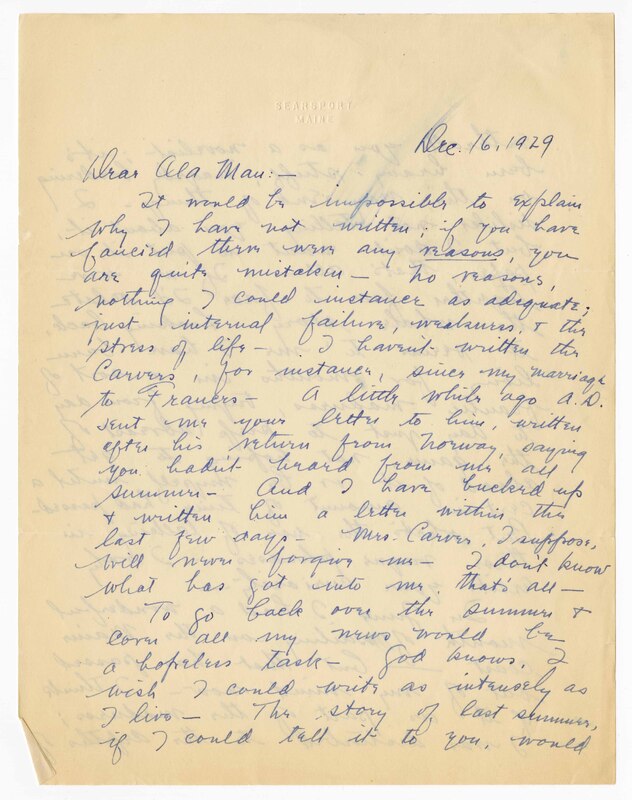 SEARSPORT
MAINE
Dec. 16, 1929
Dear Ola Man: —
It would be impossible to explain
why I have not written; if you have
fancied there were any reasons, you
are quite mistaken — no reasons,
nothing I could instance as adequate;
just internal failure, weakness, & the
stress of life — I haven't written the
Carvers, for instance, since my marriage
to Frances — A little while ago A.D.
sent me your letter to him, written
after his return from Norway, saying
you hadn't heard from me all
summer — And I have bucked up
& written him a letter within the
last few days — Mrs. Carver, I suppose,
will never forgive me — I don't know
what has got into me, that's all —
To go back over the summer &
cover all my news would be
a hopeless task — God knows, I
wish I could write as intensely as
I live — The story of last summer,
if I could tell it to you, would